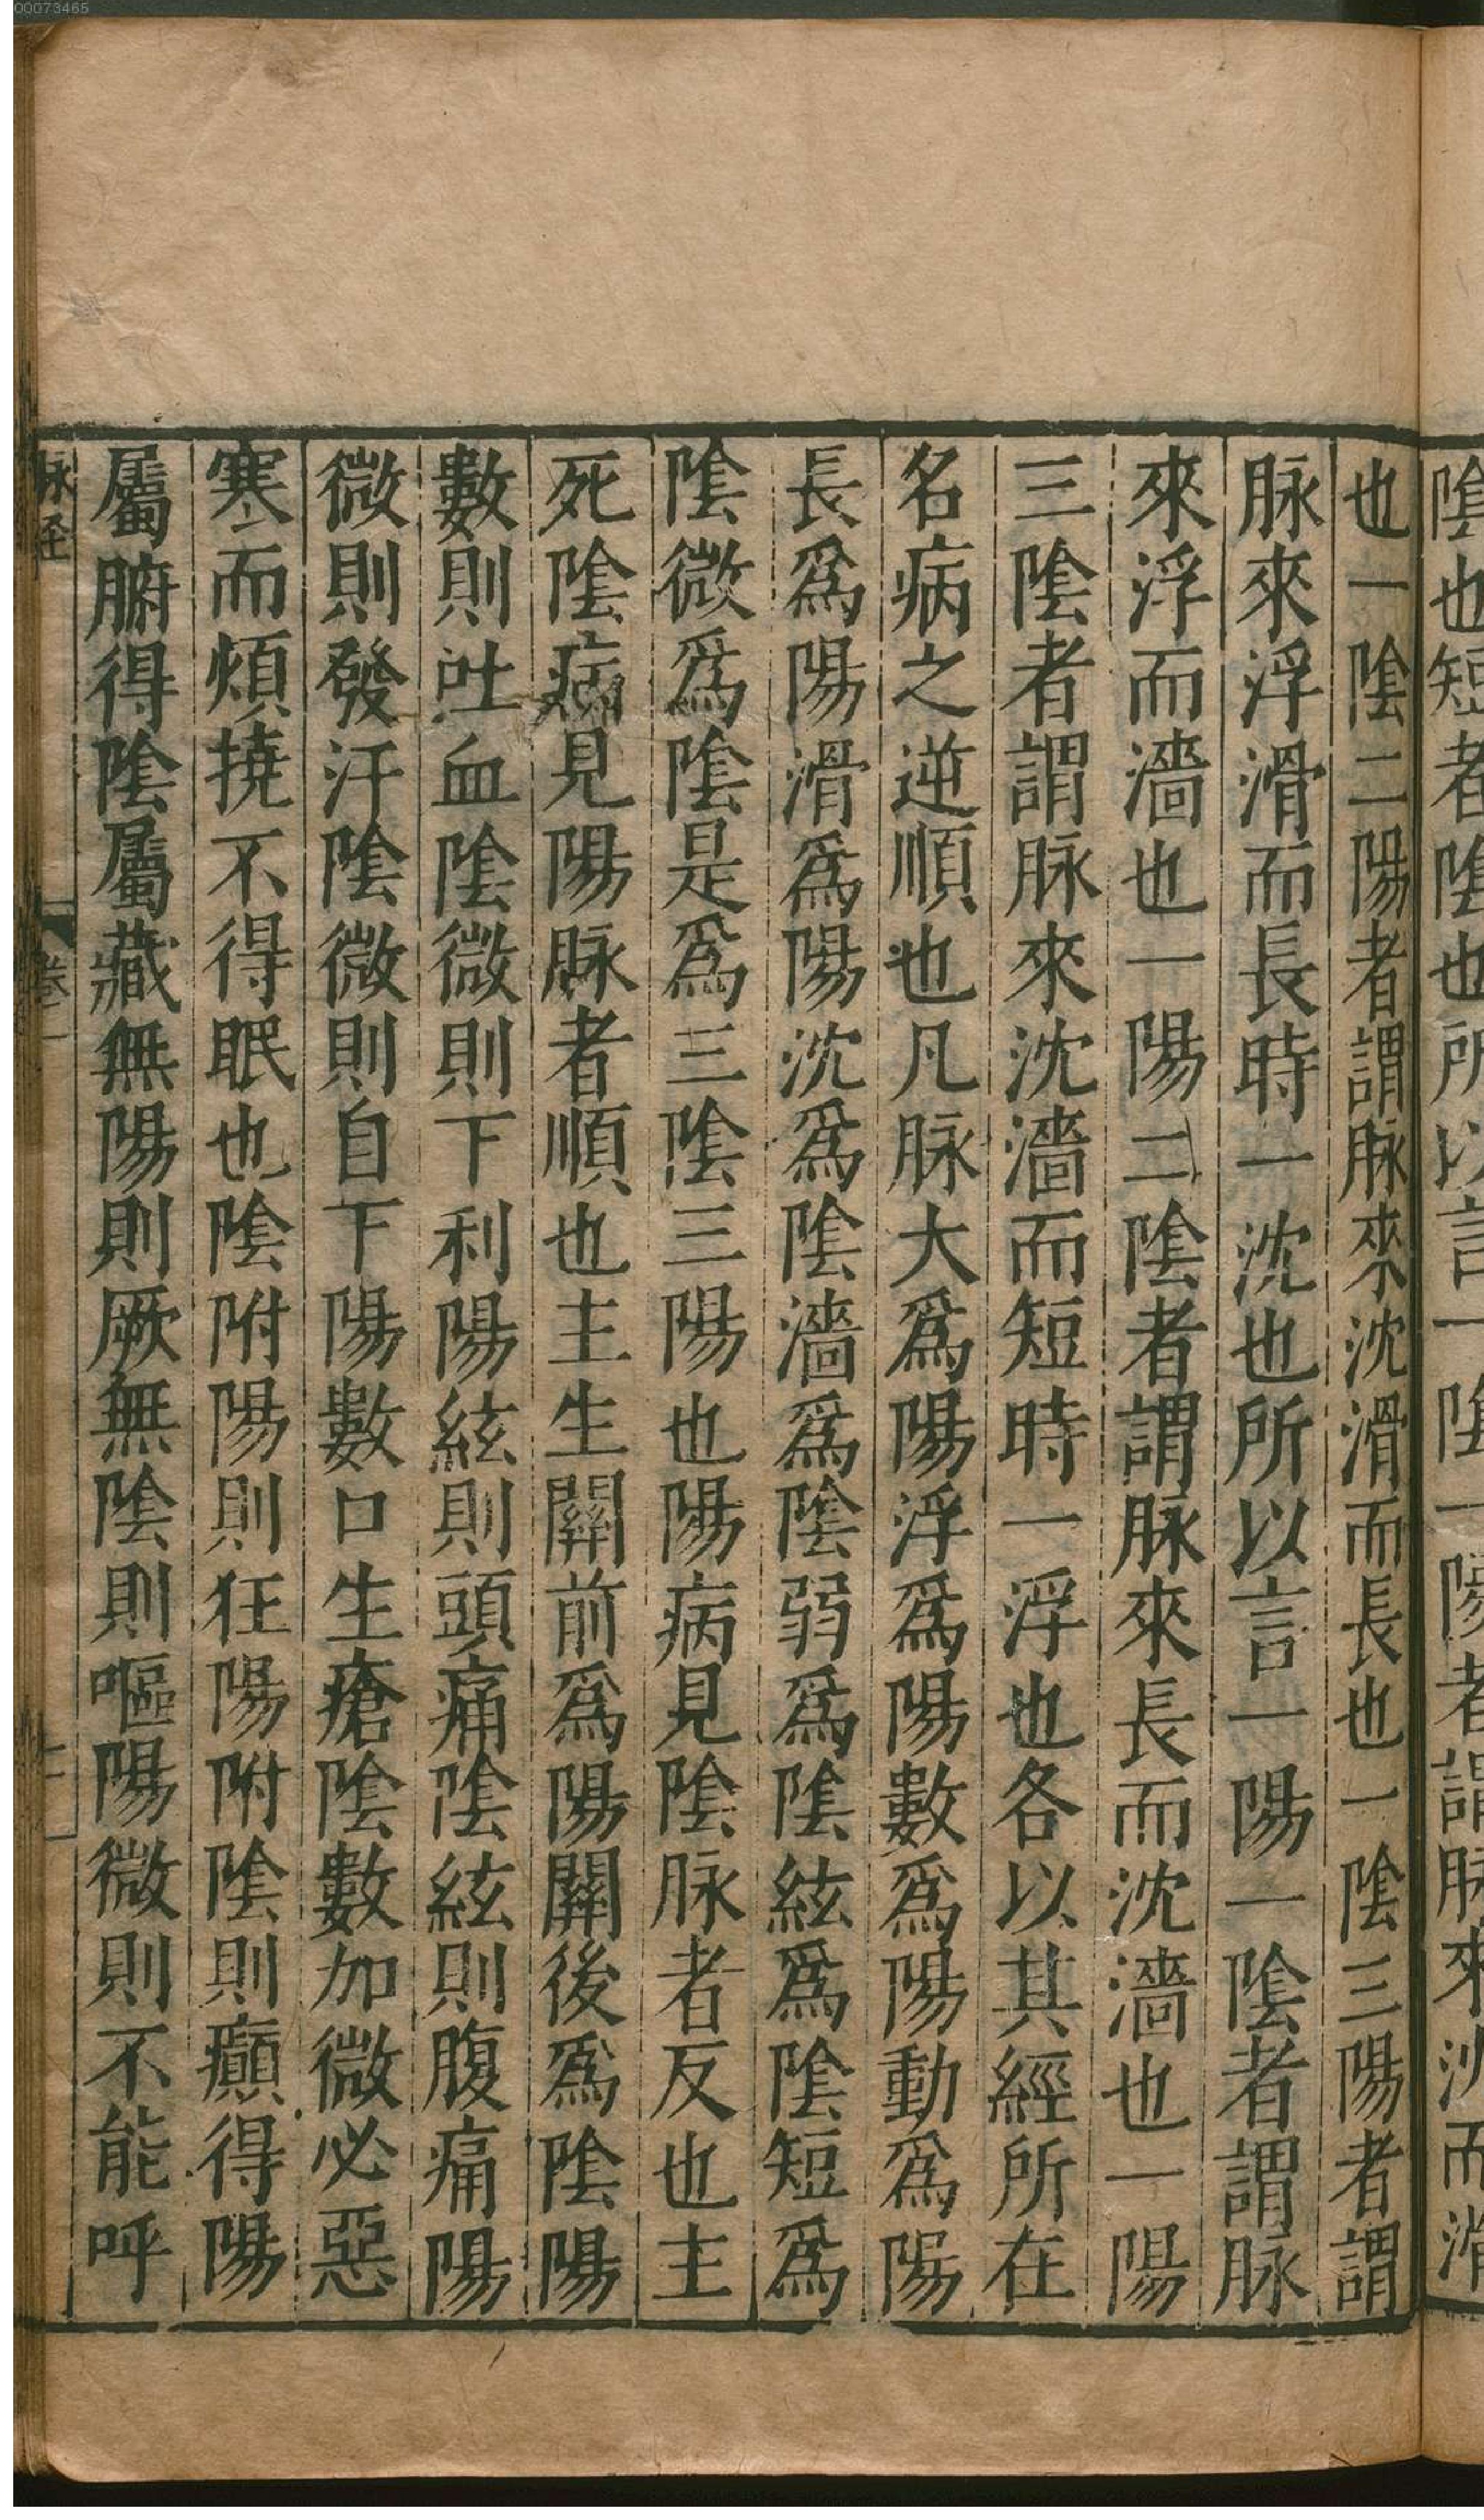 00073465
陰也短者陰也所以言一陰一陽者謂脉來沈而滑
也一陰二陽者謂脉來沈滑而長也一陰三陽者謂
脉來浮滑而長時一沈也所以言一陽一陰者謂脉
來浮而濇也一陽二陰者謂脉來長而沈濇也一陽
三陰者謂脉來沈濇而短時一浮也各以其經所在
名病之逆順也凡脉大爲陽浮爲陽數爲陽動爲陽
長爲陽滑爲陽沈爲陰濇爲陰弱爲陰絃爲陰短爲
陰微爲陰是爲三陰三陽也陽病見陰脉者反也主
死陰病見陽脉者順也主生關前爲陽關後爲陰陽
數則吐血陰微則下利陽絃則頭痛陰絃則腹痛陽
微則發汗陰微則自下陽數口生瘡陰數加微必惡
寒而煩撓不得眠也陰附陽則狂陽附陰則癲得陽
屬腑得陰屬藏無陽則厥無陰則嘔陽微則不能呼
脉經
卷一